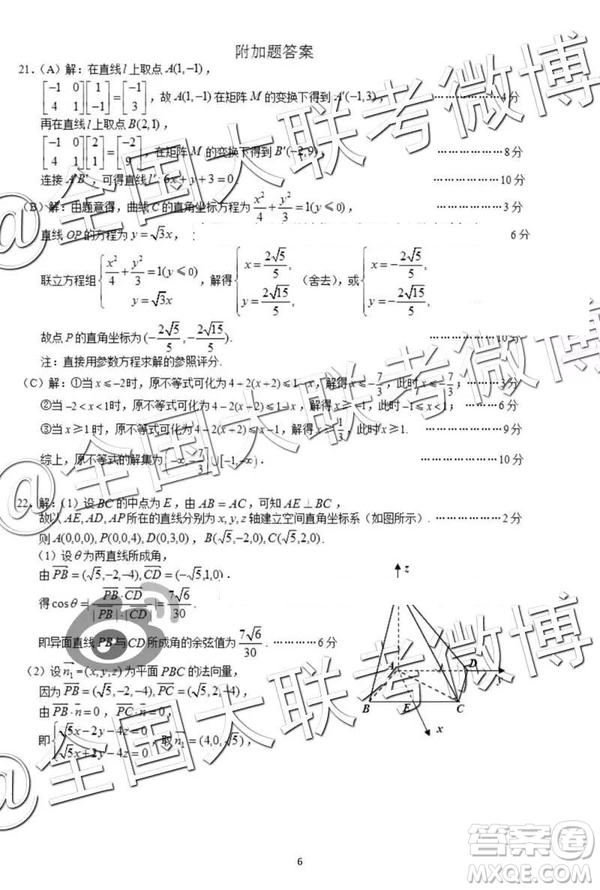 附加题答案
21.(A)解:在直线l上取点A(1,-1),
[-1 0; 4 1][1; -1]=[-1; 3],故A(1,-1)在矩阵M的变换下得到A'(-1,3), ……………4分
再在直线l上取点B(2,1),
[-1 0; 4 1][2; 1]=[-2; 9],在矩阵M的变换下得到B'(-2,9), ……………8分
连接A'B',可得直线l':6x+y+3=0 ……………10分
(B)解:由题意得,曲线C的直角坐标方程为x²/4+y²/3=1(y≤0), ……………3分
直线OP的方程为y=√3x, 6分
联立方程组{x²/4+y²/3=1(y≤0) y=√3x,解得{x=2√5/5, y=2√15/5,(舍去),或{x=-2√5/5, y=-2√15/5.
故点P的直角坐标为(-2√5/5,-2√15/5). ……………10分
注:直接用参数方程求解的参照评分.
(C)解:①当x≤-2时,原不等式可化为4-2(x+2)≤1-x,解得x≤-7/3,此时x≤-7/3; ……3分
②当-2<x<1时,原不等式可化为 ,解得x≥-1,此时-1≤x<1; ……6分
③当x≥1时,原不等式可化为 ,解得x≥1/3,此时x≥1. ……9分
综上,原不等式的解集为(-∞,-7/3]∪[-1,-∞). 10分
22.解:(1)设BC的中点为E,由AB=AC,可知AE⊥BC,
故以AE,AD,AP所在的直线分别为x,y,z轴建立空间直角坐标系(如图所示). ……………2分
则A(0,0,0),P(0,0,4),D(0,3,0),
(1)设θ为两直线所成角,
由PB=(√5,-2,-4),CD=(-√5,1,0)
得cosθ= =7√6/30
即异面直线PB与CD所成角的余弦值为7√6/30. …………6分
(2)设n₁=(x,y,z)为平面PBC的法向量,
因为PB=(√5,-2,-4),PC=(√5,2,-4),
由PB·n=0,PC·n=0,
即{√5x-2y-4z=0 √5x+2y-4z=0,取n₁=(4,0,√5),
z
A
D
B
E
C
x
6
@全国大联考微博
@全国大联考微博
@全国大联考微博
答案圈
MXQE.COM